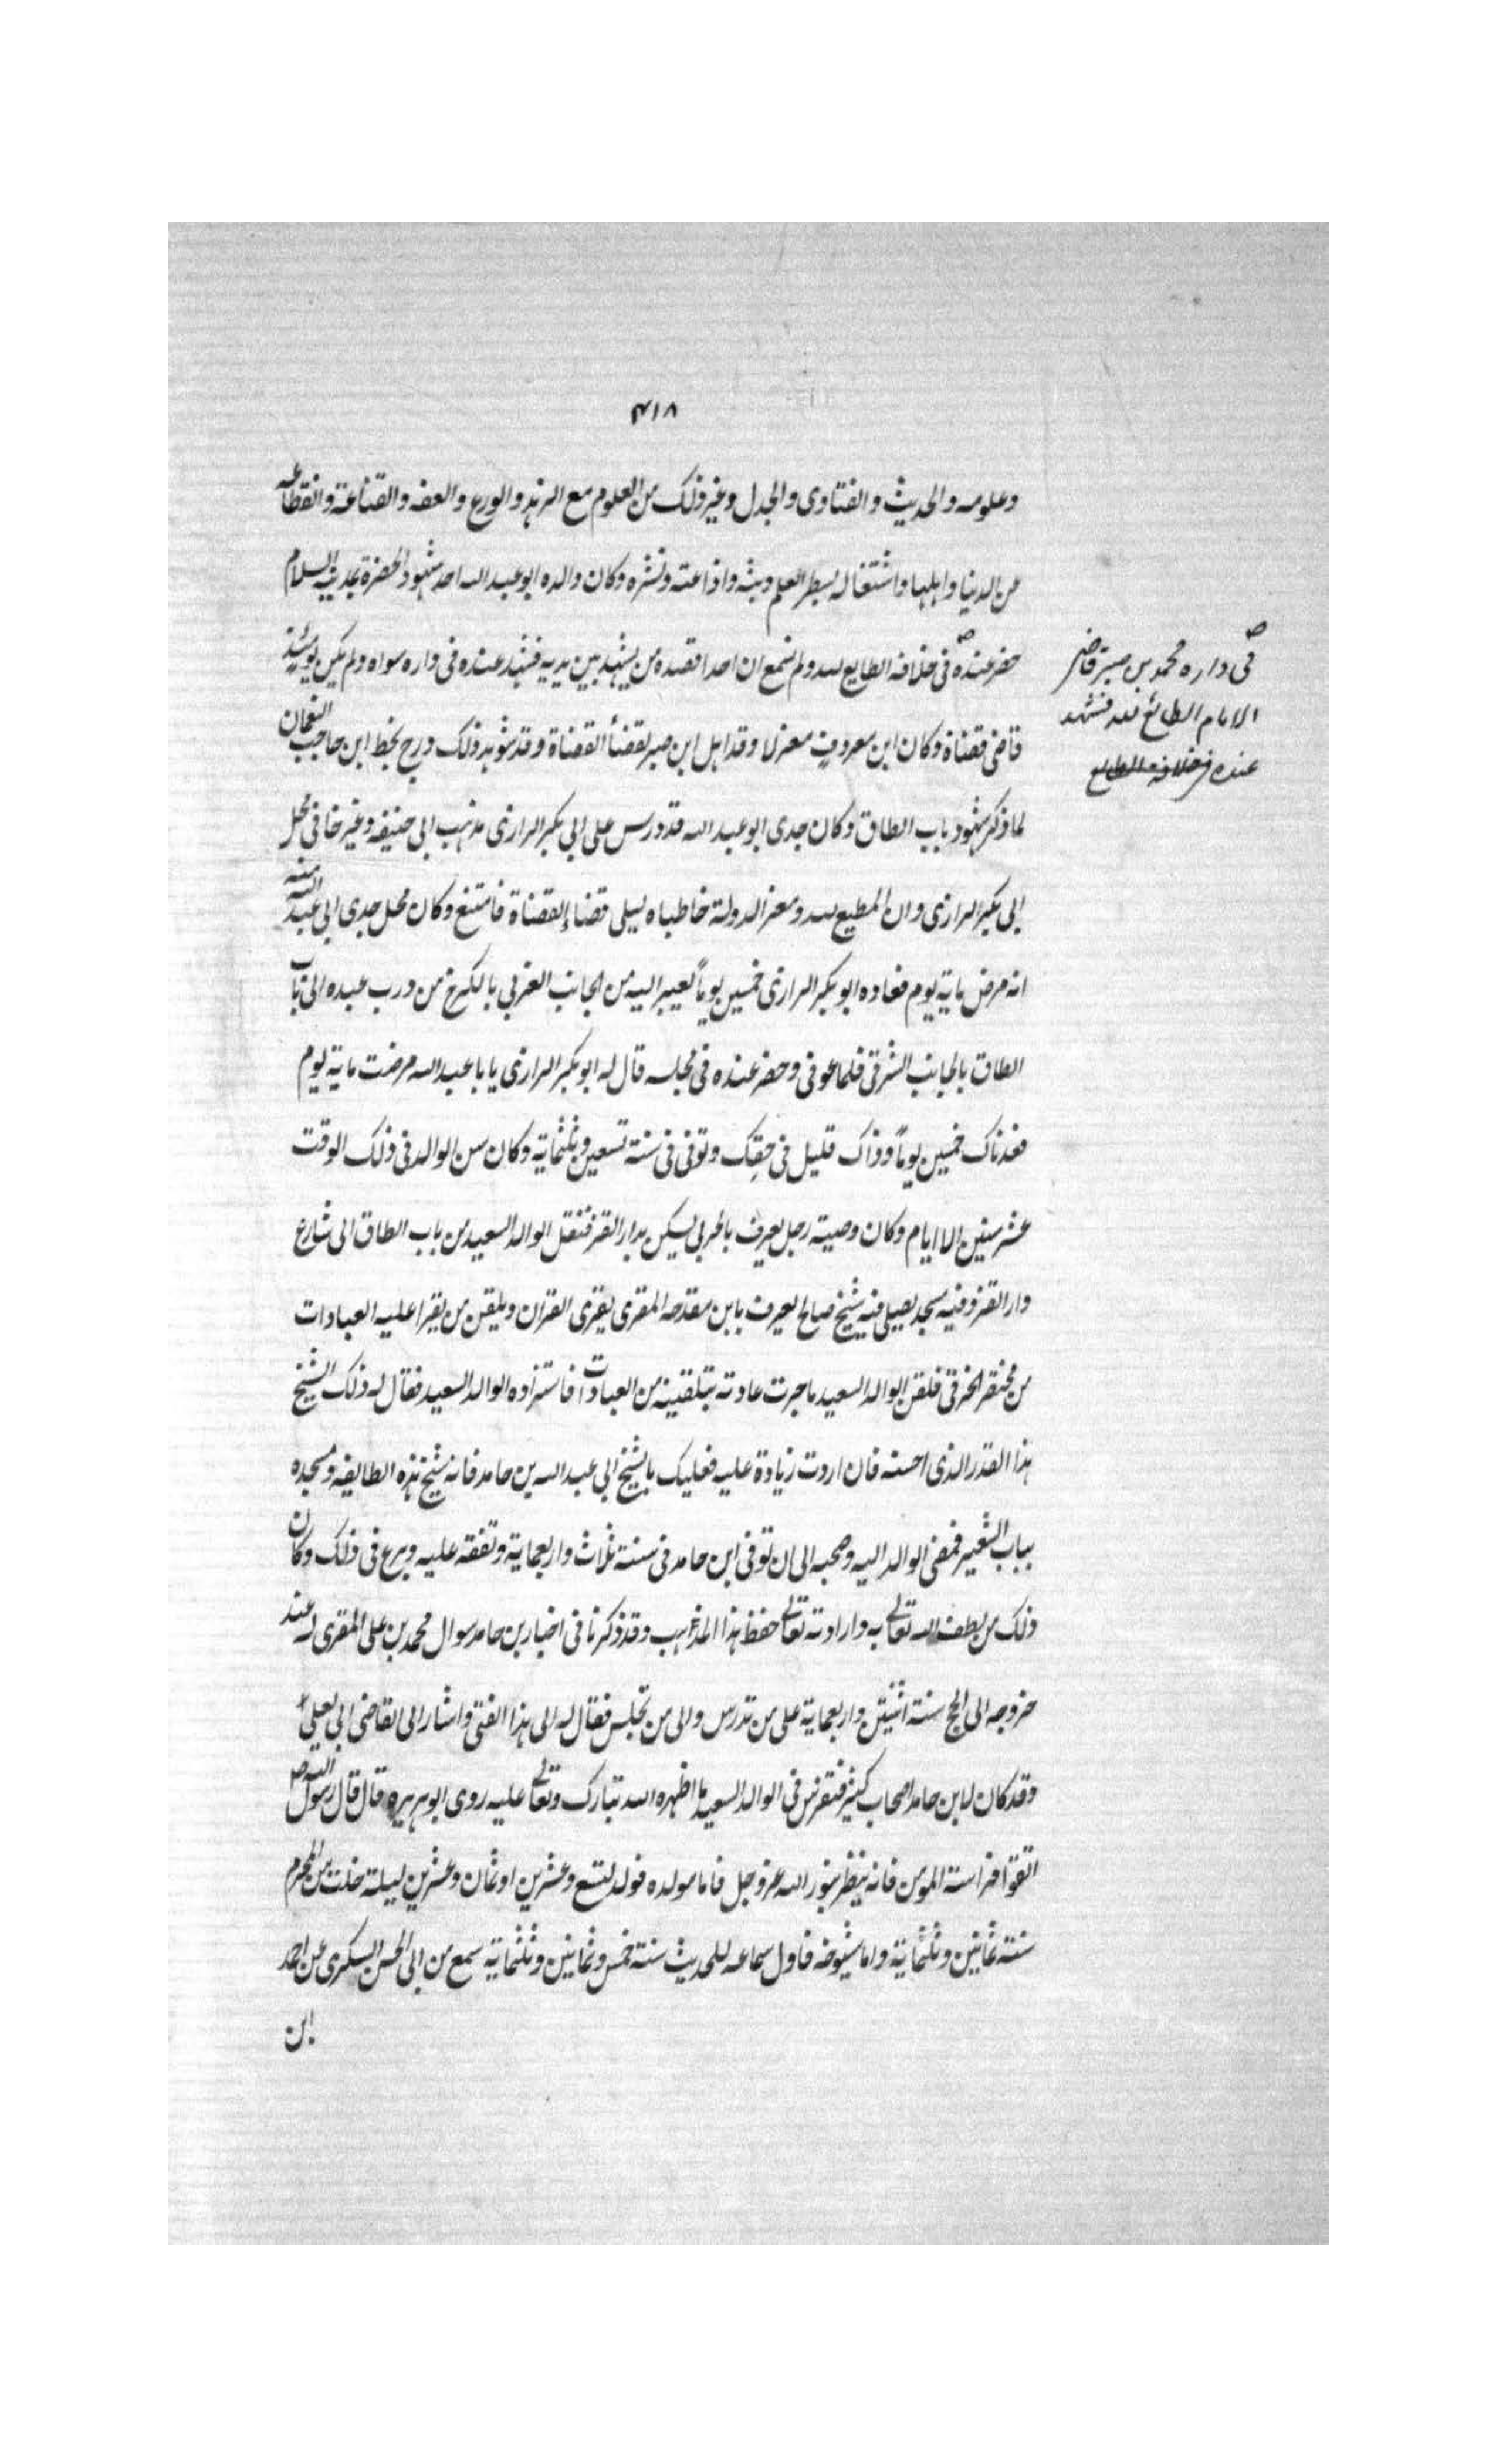 ٣١٨
وعلومه والحديث والفتاوى والجدل وغير ذلك من العلوم مع الزهد والورع والعفه والقناعة وانقطاعه
عن الدنيا واهلها واشتغاله بسطر العلم وبثه واذاعته ونشره وكان والده ابو عبد الله احد شهود الحضرة بمدينة السلام
حضر عنده في خلافة الطايع لله ولم نسمع ان احدا قصده من يشهد بين يديه فشهد عنده في داره سواه ولم يكن يومئذ
قاضي قضاة وكان ابن معروف معزلا وقد اهل ابن صبر لقضأ القضاة وقد شوهد ذلك درج بخط ابن حاجب النعمان
لما ذكر شهود باب الطاق وكان جدي ابو عبد الله قد درس على ابي بكر الرازي مذهب ابي حنيفه وغير خاف محل
ابي بكر الرازي وان المطيع لله ومعز الدولة خاطباه ليلي قضاء القضاة فامتنع وكان محل جدي ابي عبد الله منه
انه مرض ماية يوم فعاده ابو بكر الرازي خمسين يوماً يعبر اليه من الجانب الغربي بالكرخ من درب عبده الى باب
الطاق بالجانب الشرقي فلما عوفي وحضر عنده في مجلسه قال له ابو بكر الرازي يا با عبد الله مرضت ماية يوم
فعدناك خمسين يوماً وذاك قليل في حقك وتوفي في سنة تسعين وثلثماية وكان سن الوالد في ذلك الوقت
عشر سنين الا ايام وكان وصيته رجل يعرف بالحربي يسكن بدار القز فنقل الوالد السعيد من باب الطاق الى شارع
دار القز وفيه مسجد يصلي فيه شيخ صالح يعرف بابن مقدحه المقرى يقرى القران ويلقن من يقرا عليه العبادات
من مختصر الخرقي فلقن الوالد السعيد ما جرت عادته بتلقينه من العبادات فاستزاده الوالد السعيد فقال له ذلك الشيخ
هذا القدر الذي احسنه فان اردت زيادة عليه فعليك بالشيخ ابي عبد الله بن حامد فانه شيخ هذه الطايفه ومسجده
بباب الشعير فمضى الوالد اليه وصحبه الى ان توفي ابن حامد في سنة ثلاث واربعماية وتفقه عليه وبرع في ذلك وكان
ذلك من لطف الله تعالى به وارادته تعالى حفظ هذا المذهب وقد ذكرنا في اخبار بن حامد سوال محمد بن علي المقرى له عند
خروجه الى الحج سنة اثنتين واربعماية على من ندرس والى من نجلس فقال له الى هذا الفتى واشار الى القاضي ابي يعلى
وقد كان لابن حامد اصحاب كثير فتفرس في الوالد السعيد ما اظهره الله تبارك وتعالى عليه روى ابو هريره قال قال رسول الله ص
اتقوا فراسة المومن فانه ينظر بنور الله عز وجل فاما مولده فولد لتسع وعشرين او ثمان وعشرين ليلة خلت من المحرم
سنة ثمانين وثلثماية واما شيوخه فاول سماعه للحديث سنة خمس وثمانين وثلثماية سمع من ابي الحسن السكرى عن احمد
بن
في داره محمد بن صبر قاضي
الامام الطائع لله فشهد
عنده في خلافة الطايع